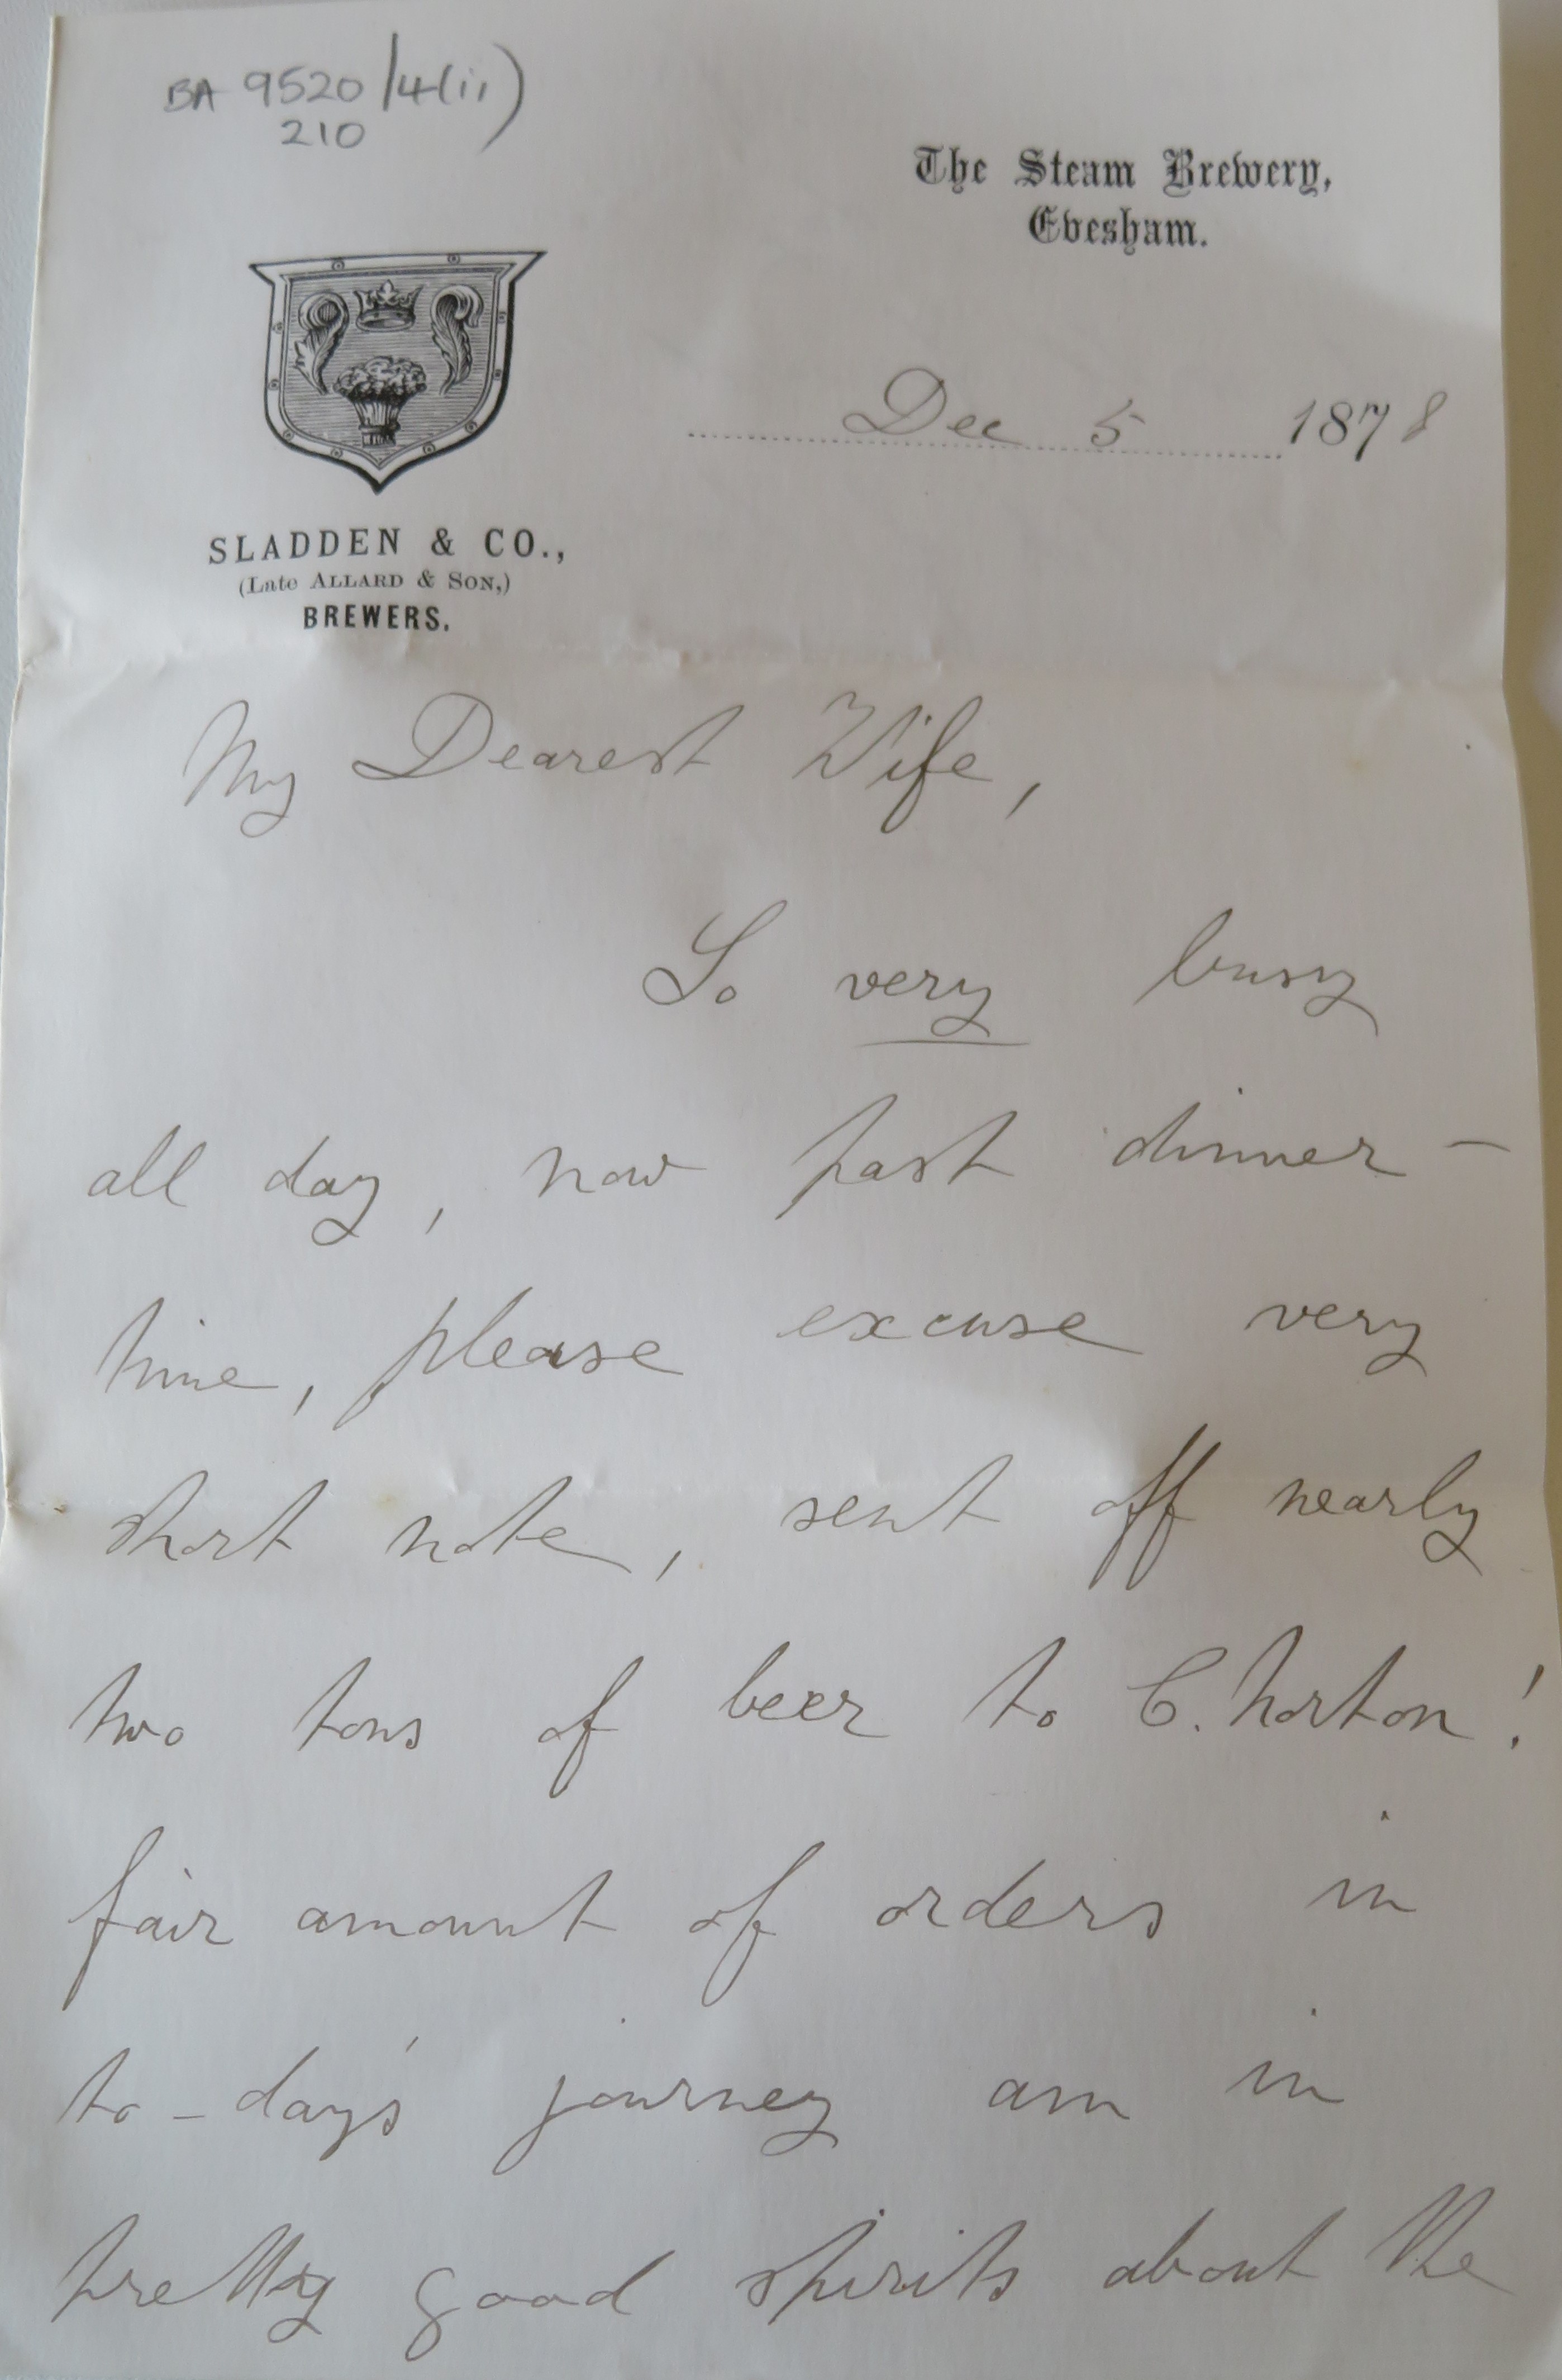 BA 9520/4(ii)
210
The Steam Brewery,
Evesham.
Dec 5 1878
SLADDEN & CO.,
(Late ALLARD & SON,)
BREWERS.
My Dearest Wife,
So very busy
all day, now past dinner -
time, please excuse very
short note, sent off nearly
two tons of beer to C. Norton!
fair amount of orders in
to-day's journey am in
pretty good spirits about the